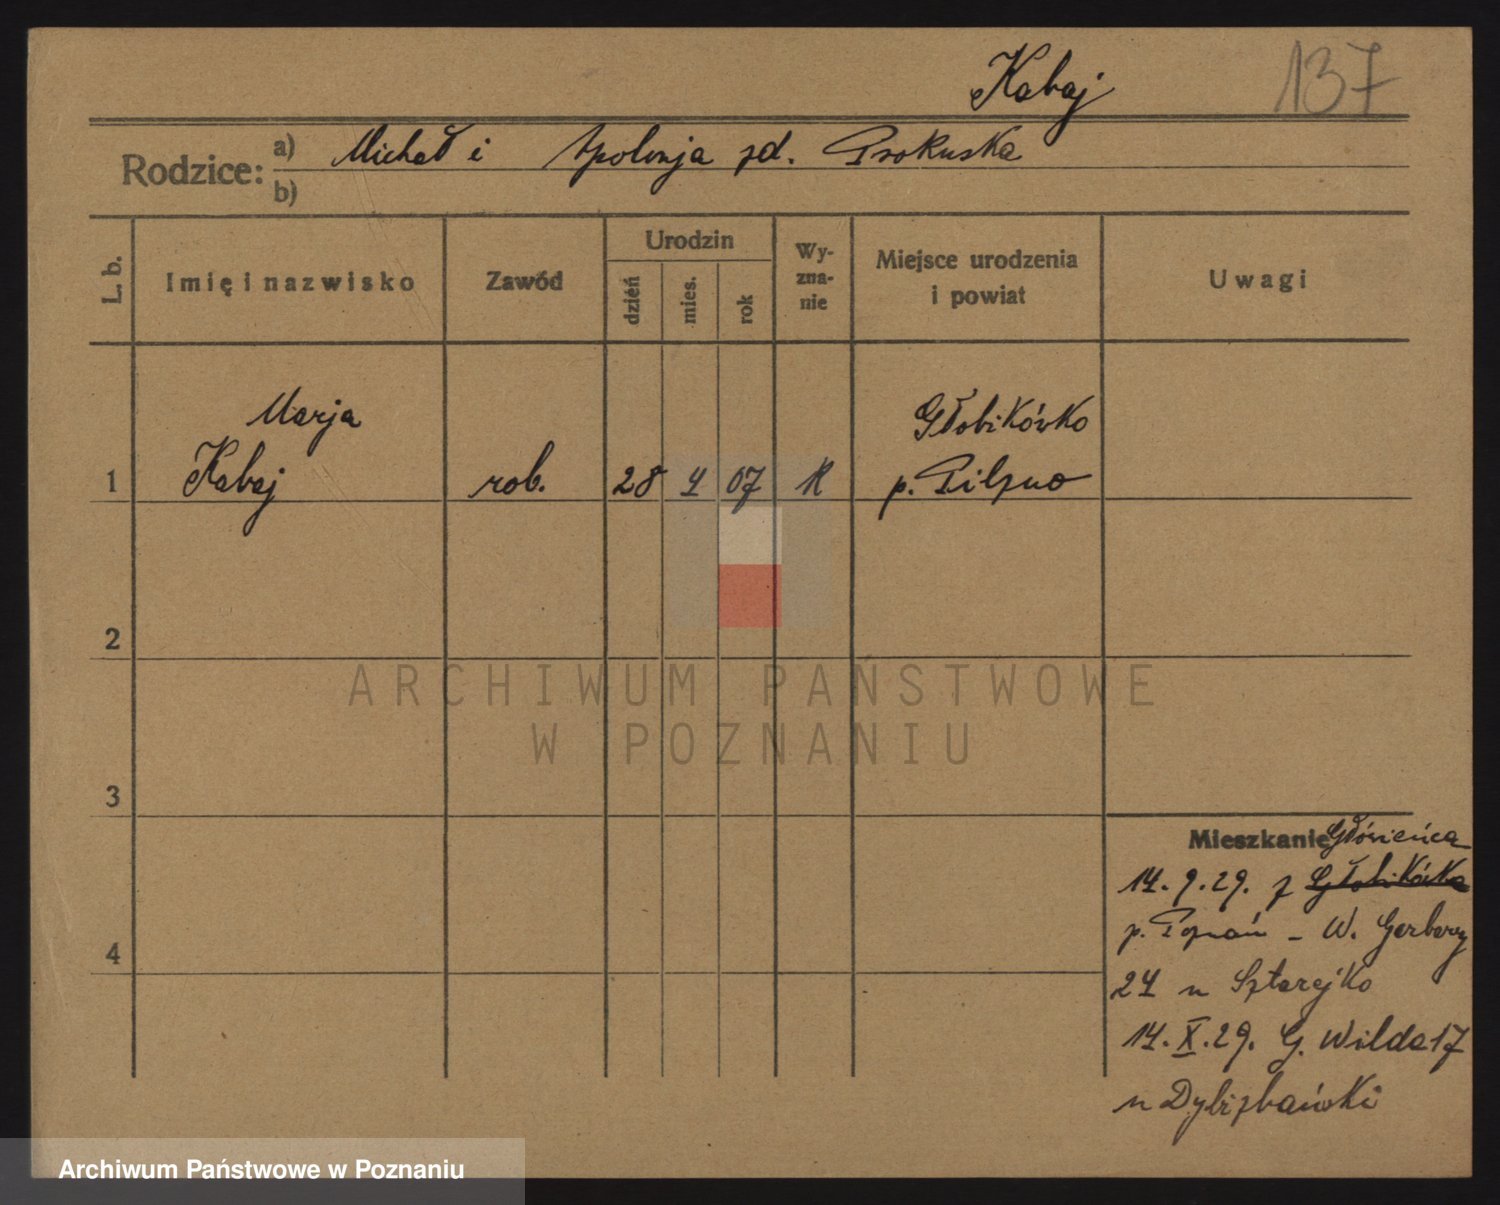 Kabaj 137
Rodzice: a) Michał i Apolonja zd. Prokuska
b)
L. b. Imię i nazwisko Zawód Urodzin dzień mies. rok Wy-zna-nie Miejsce urodzenia i powiat Uwagi
Marja Głobikówko
1 Kabaj rob. 28 4 07 R p. Pilzno
2
ARCHIWUM PAŃSTWOWE
W POZNANIU
3
Mieszkanie
14.9.29. z Głobikówka
4 p. Poznań - W. Garbary
24 u Sztarejko
14.X.29. G. Wilda 17
u
Archiwum Państwowe w Poznaniu